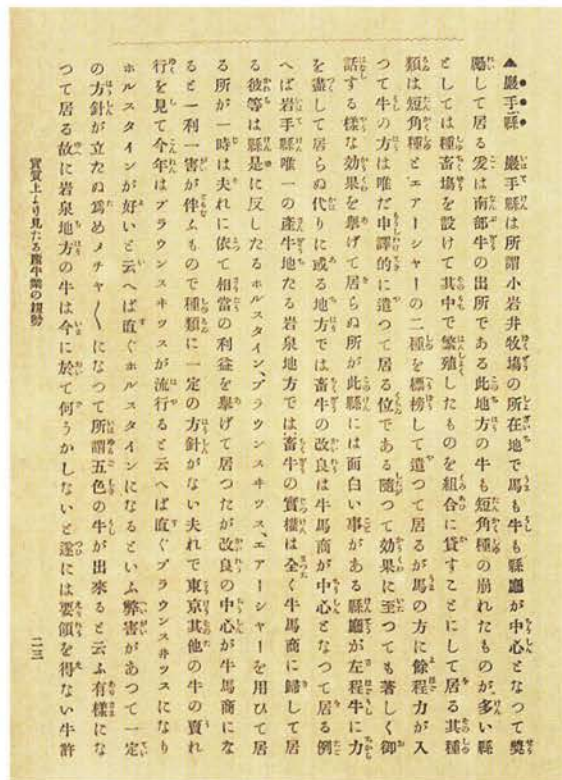 ▲巖手縣　巖手縣は所謂小岩井牧場の所在地で馬も牛も縣廳が中心となつて奬
勵して居る爰は南部牛の出所である此地方の牛も短角種の崩れたものが、多い縣
としては種畜塲を設けて其中で繁殖したものを組合に貸すことにして居る其種
類は短角種とエアーシャーの二種を標榜して遣つて居るが馬の方に餘程力が入
つて牛の方は唯だ申譯的に遣つて居る位である隨つて効果に至つても著しく御
話する樣な効果を擧げて居らぬ所が此縣には面白い事がある縣廳が左程牛に力
を盡して居らぬ代りに或る地方では畜牛の改良は牛馬商が中心となつて居る例
へば岩手縣唯一の產牛地たる岩泉地方では、畜牛の實權は全く牛馬商に歸して居
る彼等は縣是に反したるホルスタイン、ブラウンスヰッス、エアーシャーを用ひて居
る所が一時は夫れに依て相當の利益を擧げて居つたが改良の中心が牛馬商にな
ると一利一害が伴ふもので種類に一定の方針がない夫れで東京其他の牛の賣れ
行を見て今年はブラウンスヰッスが流行ると云へば直ぐブラウンスヰッスになり
ホルスタインが好いと云へば直ぐホルスタインになるといふ弊害があつて一定
の方針が立たぬ爲めメチャ〱になつて所謂五色の牛が出來ると云ふ有樣にな
つて居る故に岩泉地方の牛は今に於て何うかしないと遂には要領を得ない牛許
實質上より見たる產牛界の趨勢
二三